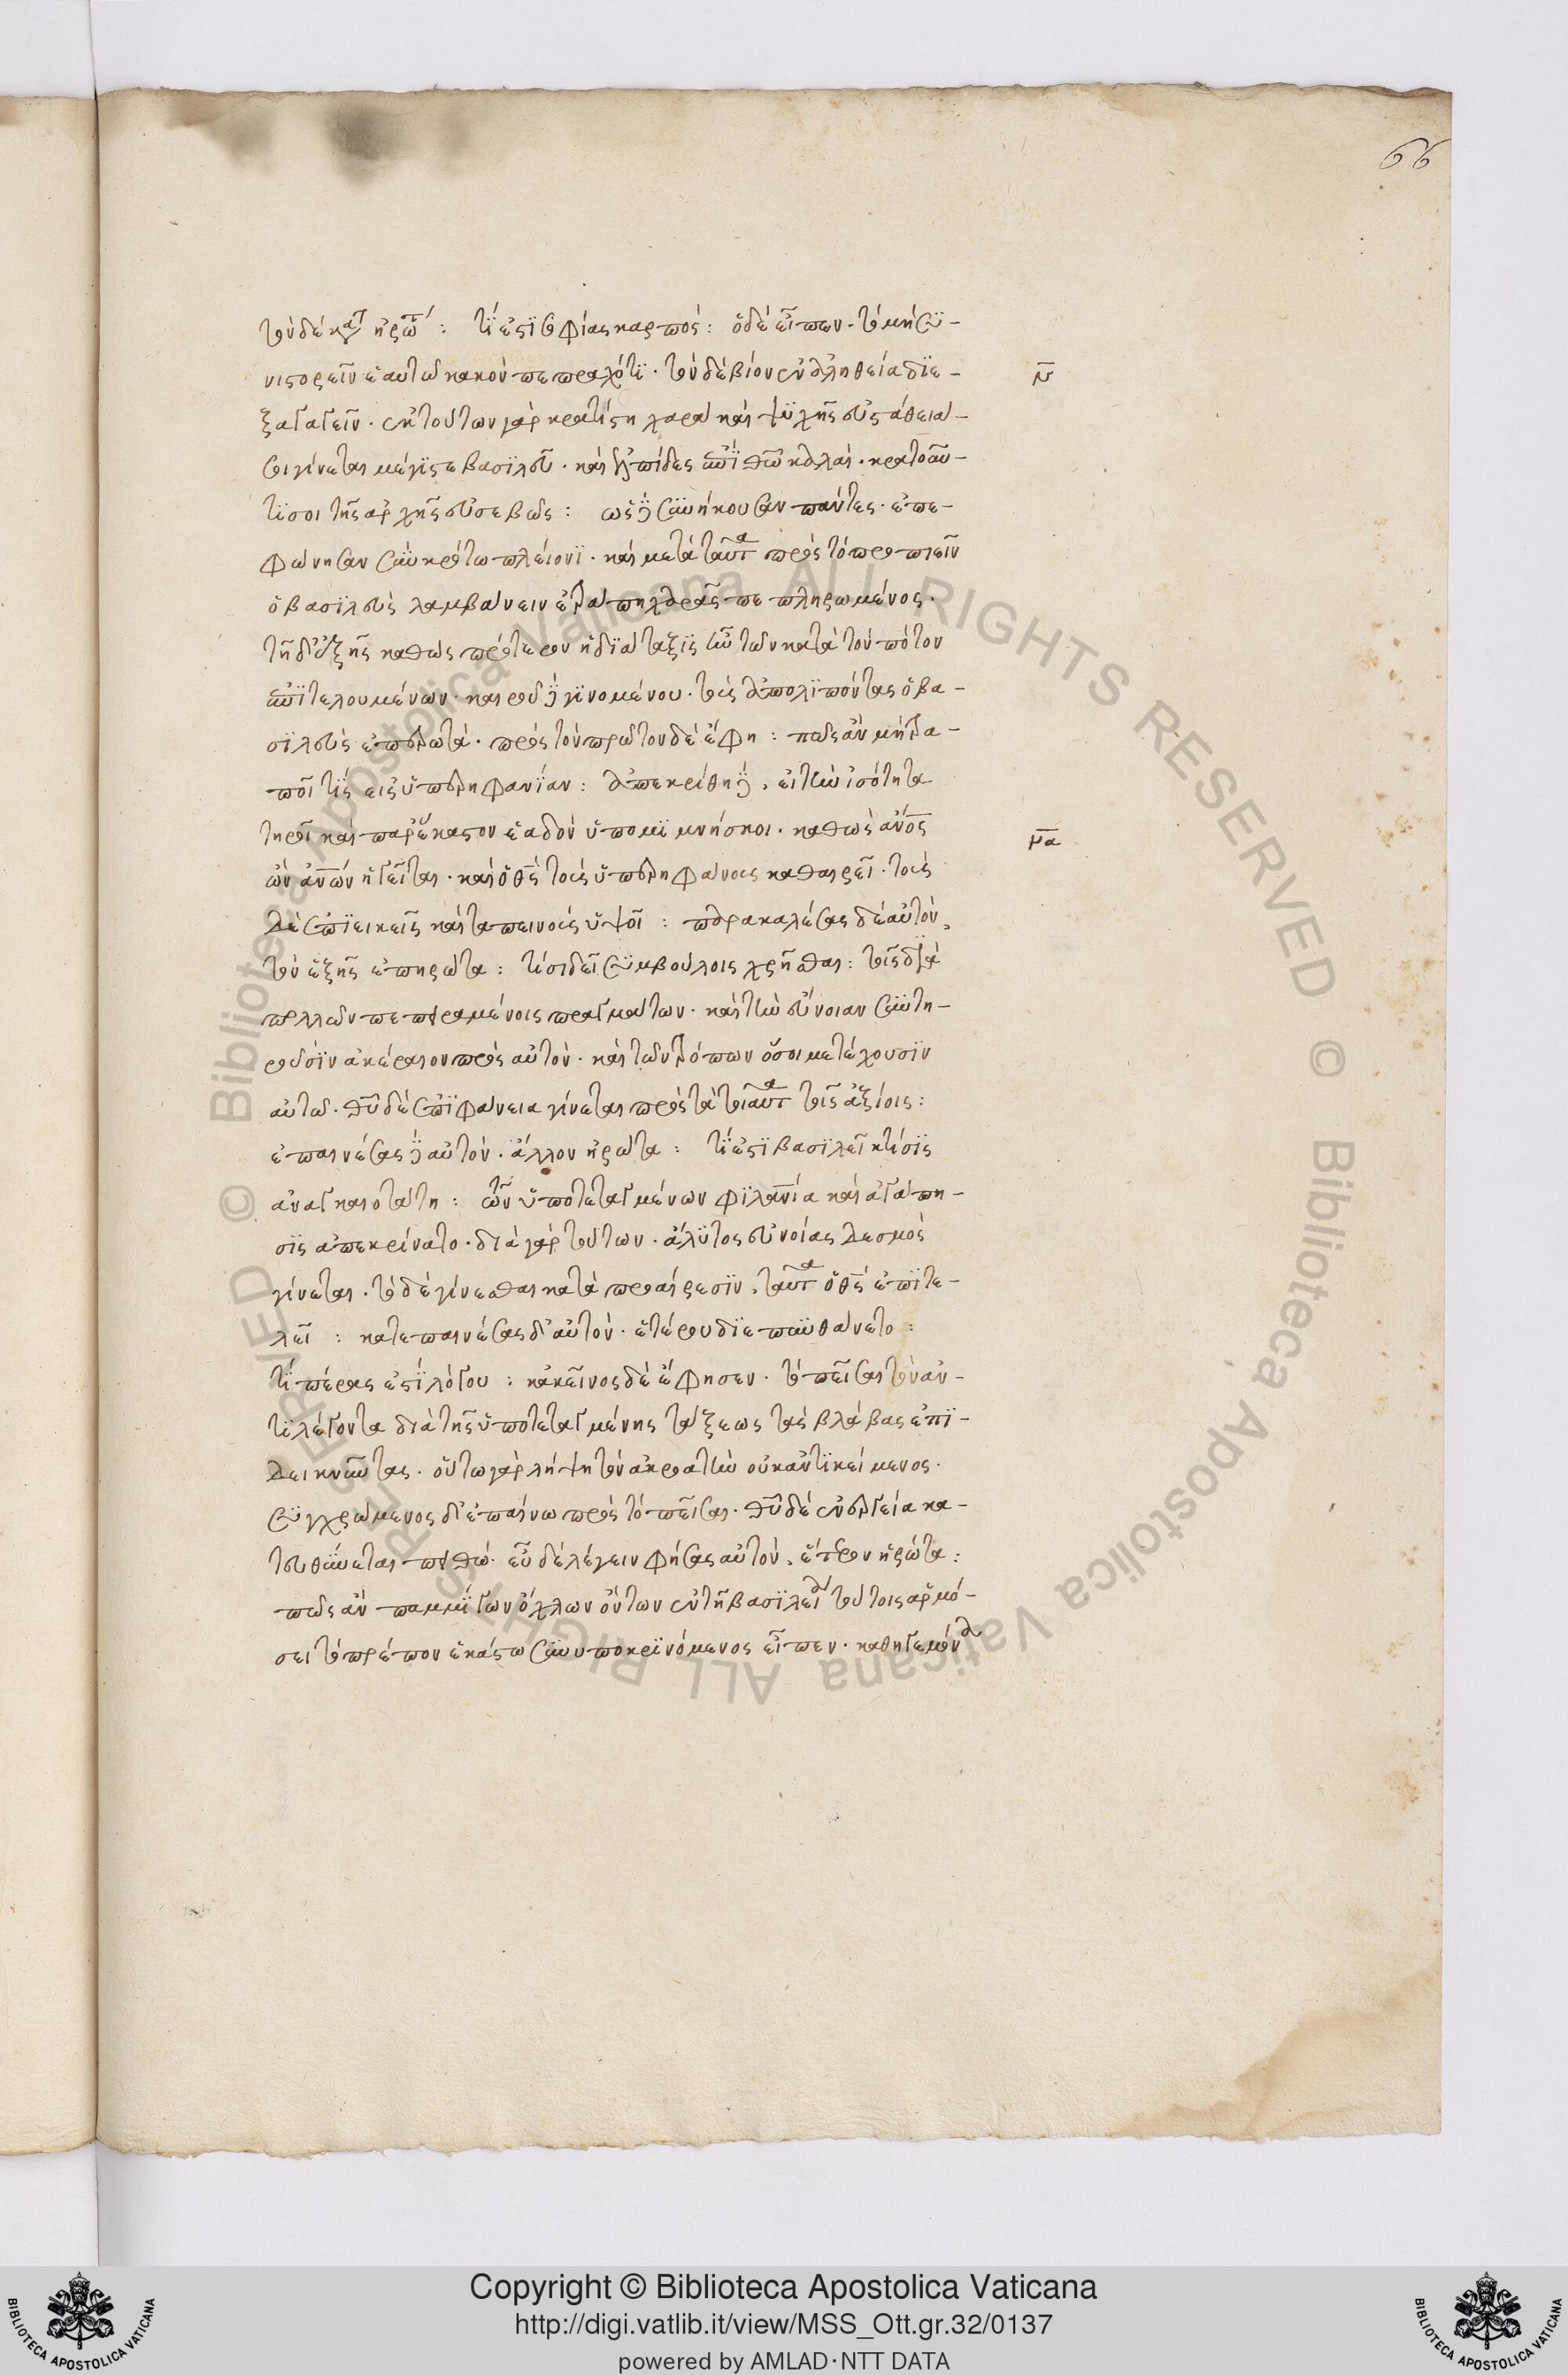 66
τὸν δέκατ ἠρώτ : τί ἐστϊ σοφίας καρπός : ὁ δὲ εἶπεν · τὸ μὴ συ-
νιστορεῖν ἑαυτῶ κακὸν πεπραχότϊ · τὸν δὲ βίον ἐν ἀληθεία διε-
ν̅
ξαγαγεῖν · ἐκ τούτων γὰρ κρατίστη χαρὰ καὶ ψυχῆς εὐστάθειά
σοι γίνεται μέγιστε βασϊλεῦ · καὶ ἐλπίδες ἐπὶ θῶ καλαὶ · κρατοῦν-
τϊ σοι τῆς ἀρχῆς εὐσεβῶς : ὡς δὲ συνήκουσαν πάντες · ἐπε-
φώνησαν σὺν κρότω πλείονϊ · καὶ μετὰ ταῦτα πρὸς τὸ προπιεῖν
ὁ βασϊλεὺς λαμβάνειν ἐτράπη χαρᾶς πεπληρωμένος ·
τῆ δ' ἑξῆς καθὼς πρότερον ἡ διάταξϊς ἦν τῶν κατὰ τὸν πότον
ἐπιτελουμένων · καιροῦ δὲ γϊνομένου · τοὺς ἀπολϊπόντας ὁ βα-
σϊλεὺς ἐπερωτὰ · πρὸς τὸν πρῶτον δὲ ἔφη : πῶς ἂν μὴ τρα-
ποῖ τϊς εἰς ὑπερηφανίαν : ἀπεκρίθη δὲ · εἰ τὴν ἰσότητα
τηροῖ καὶ παρ' ἕκαστον ἑαυτὸν ὑπομϊμνήσκοι · καθὼς ἄν̅ος
μ̅α
ὢν ἀν̅ων ἡγεῖται · καὶ ὁ θ̅ς τοὺς ὑπερηφάνους καθαιρεῖ · τοὺς
δὲ ἐπιεικεῖς καὶ ταπεινοὺς ὑψοῖ : παρακαλέσας δὲ αὐτὸν ·
τὸν ἑξῆς ἐπηρώτα : τίσι δεῖ συμβούλοις χρῆσθαι : τοῖς διὰ
πολλῶν πεπειραμένοις πραγμάτων · καὶ τὴν εὔνοιαν συντη-
ροῦσϊν ἀκέραιον πρὸς αὐτὸν · καὶ τῶν τρόπων ὅσοι μετέχουσϊν
αὐτῶ · θ̅υ δὲ ἐπϊφάνεια γίνεται πρὸς τὰ τοιαῦτα τοῖς ἀξίοις :
ἐπαινέσας δὲ αὐτὸν · ἄλλον ἠρώτα : τί ἐστϊ βασϊλεῖ κτίσϊς
ἀναγκαιοτάτη : τῶν ὑποτεταγμένων φϊλαν̅ία καὶ ἀγάπη-
σϊς ἀπεκρίνατο · διὰ γὰρ τούτων · ἄλυτος εὐνοίας δεσμὸς
γίνεται · τὸ δὲ γίνεσθαι κατὰ προαίρεσϊν · ταῦτα ὁ θ̅ς ἐπϊτε-
λεῖ : κατεπαινέσας δ' αὐτὸν · ἑτέρου διεπυνθάνετο :
τί πέρας ἐστϊ λόγου : κἀκεῖνος δὲ ἔφησεν · τὸ πεῖσαι τὸν ἀν-
τϊλέγοντα διὰ τῆς ὑποτεταγμένης τάξεως τὰς βλάβας ἐπϊ-
δεικνύντας · οὕτω γὰρ λήψη τὸν ἀκροατὴν οὐκ ἀντϊκείμενος ·
συγχρώμενος δ' ἐπαίνω πρὸς τὸ πεῖσαι · θ̅υ δὲ ἐνεργεία κα-
τευθύνεται πειθώ · εὖ δὲ λέγειν φήσας αὐτὸν · ἕτερον ἠρώτα :
πῶς ἂν παμμϊγῶν ὄχλων ὄντων ἐν τῆ βασϊλεία τούτοις ἁρμό-
σει τὸ πρέπον ἑκάστω συνυποκρϊνόμενος εἶπεν · καθηγεμόνα